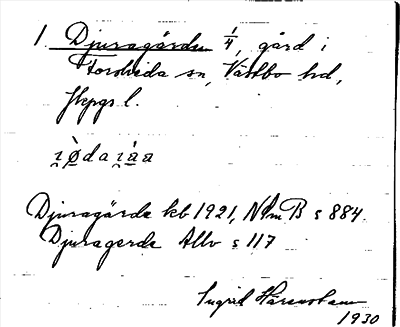 1. Djuragården 1/4, gård i
Forsheda sn, Västbo hd,
Jkpgs l.
Djuragärde kb 1921, NAmB s 884.
Djuragerde Allv s 117
Ingrid
1930